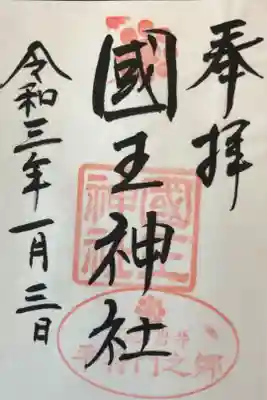 奉拝
國王神社
令和三年一月三日
國王神社
平将門之郷